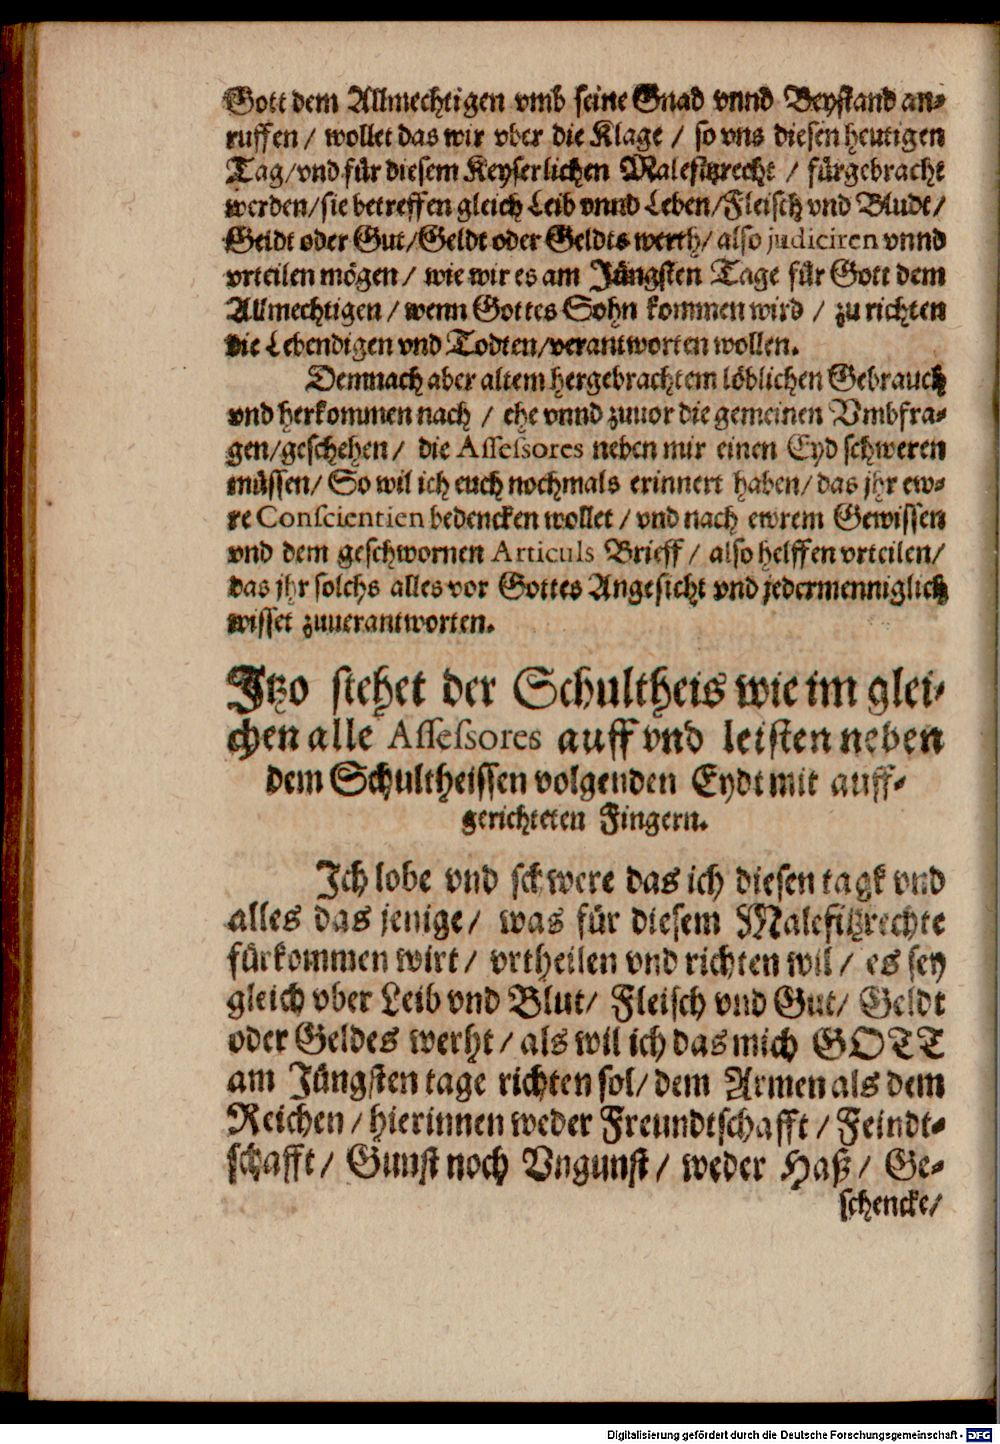 Gott dem Allmechtigen vmb seine Gnad vnnd Beystand an-
ruffen / wollet das wir vber die Klage / so vns diesen heutigen
Tag/vnd für diesem Keyserlichen Malefitzrecht / fürgebracht
werden/sie betreffen gleich Leib vnnd Leben/Fleisch vnd Bludt/
Geldt oder Gut/Geldt oder Geldts werth/ also judiciren vnnd
vrteilen mögen / wie wir es am Jüngsten Tage für Gott dem
Allmechtigen / wenn Gottes Sohn kommen wird / zu richten
die Lebendigen vnd Todten/verantworten wollen.
Demnach aber altem hergebrachtem löblichen Gebrauch
vnd herkommen nach / ehe vnnd zuuor die gemeinen Vmbfra-
gen/geschehen / die Assessores neben mir einen Eyd schweren
müssen/ So wil ich euch nochmals erinnert haben/ das jhr ew-
re Conscientien bedencken wollet / vnd nach ewrem Gewissen
vnd dem geschwornen Articuls Brieff / also helffen vrteilen/
das jhr solchs alles vor Gottes Angesicht vnd jedermenniglich
wisset zuuerantworten.
Itzo stehet der Schultheis wie im glei-
chen alle Assessores auff vnd leisten neben
dem Schultheissen volgenden Eydt mit auff-
gerichteten Fingern.
Ich lobe vnd schwere das ich diesen tagk vnd
alles das jenige/ was für diesem Malefitzrechte
fürkommen wirt / vrtheilen vnd richten wil / es sey
gleich vber Leib vnd Blut/ Fleisch vnd Gut/ Geldt
oder Geldes werht / als wil ich das mich GOTT
am Jüngsten tage richten sol/ dem Armen als dem
Reichen / hierinnen weder Freundtschafft / Feindt-
schafft / Gunst noch Vngunst / weder Haß / Ge-
schencke/
Digitalisierung gefördert durch die Deutsche Forschungsgemeinschaft - DFG